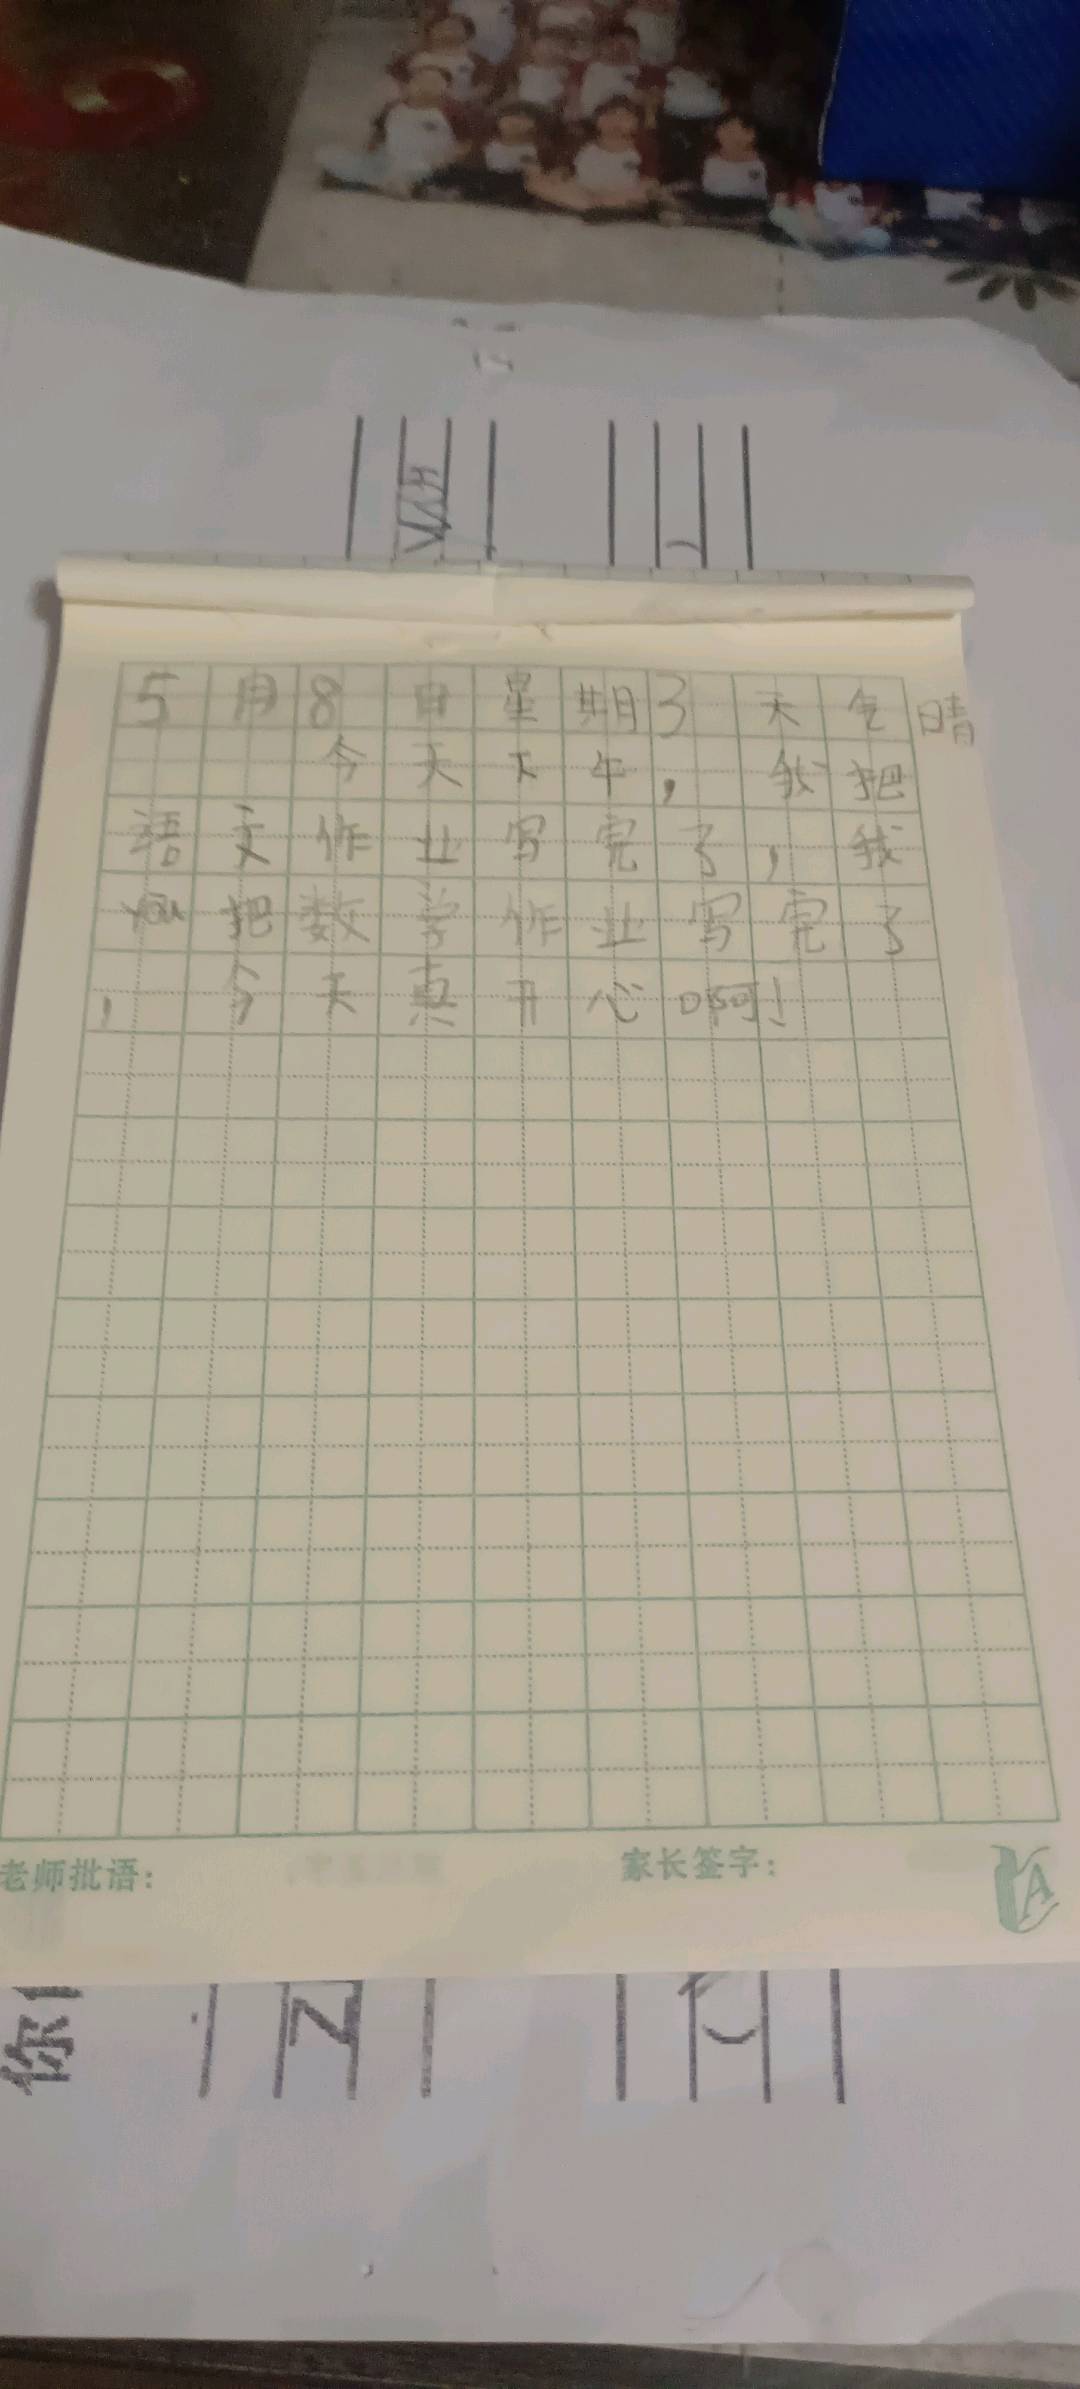 5月8日星期3 天气晴
今天下午，我把
语文作业写完了，我
把数学作业写完了
，今天真开心啊！
老师批语：
家长签字：
你